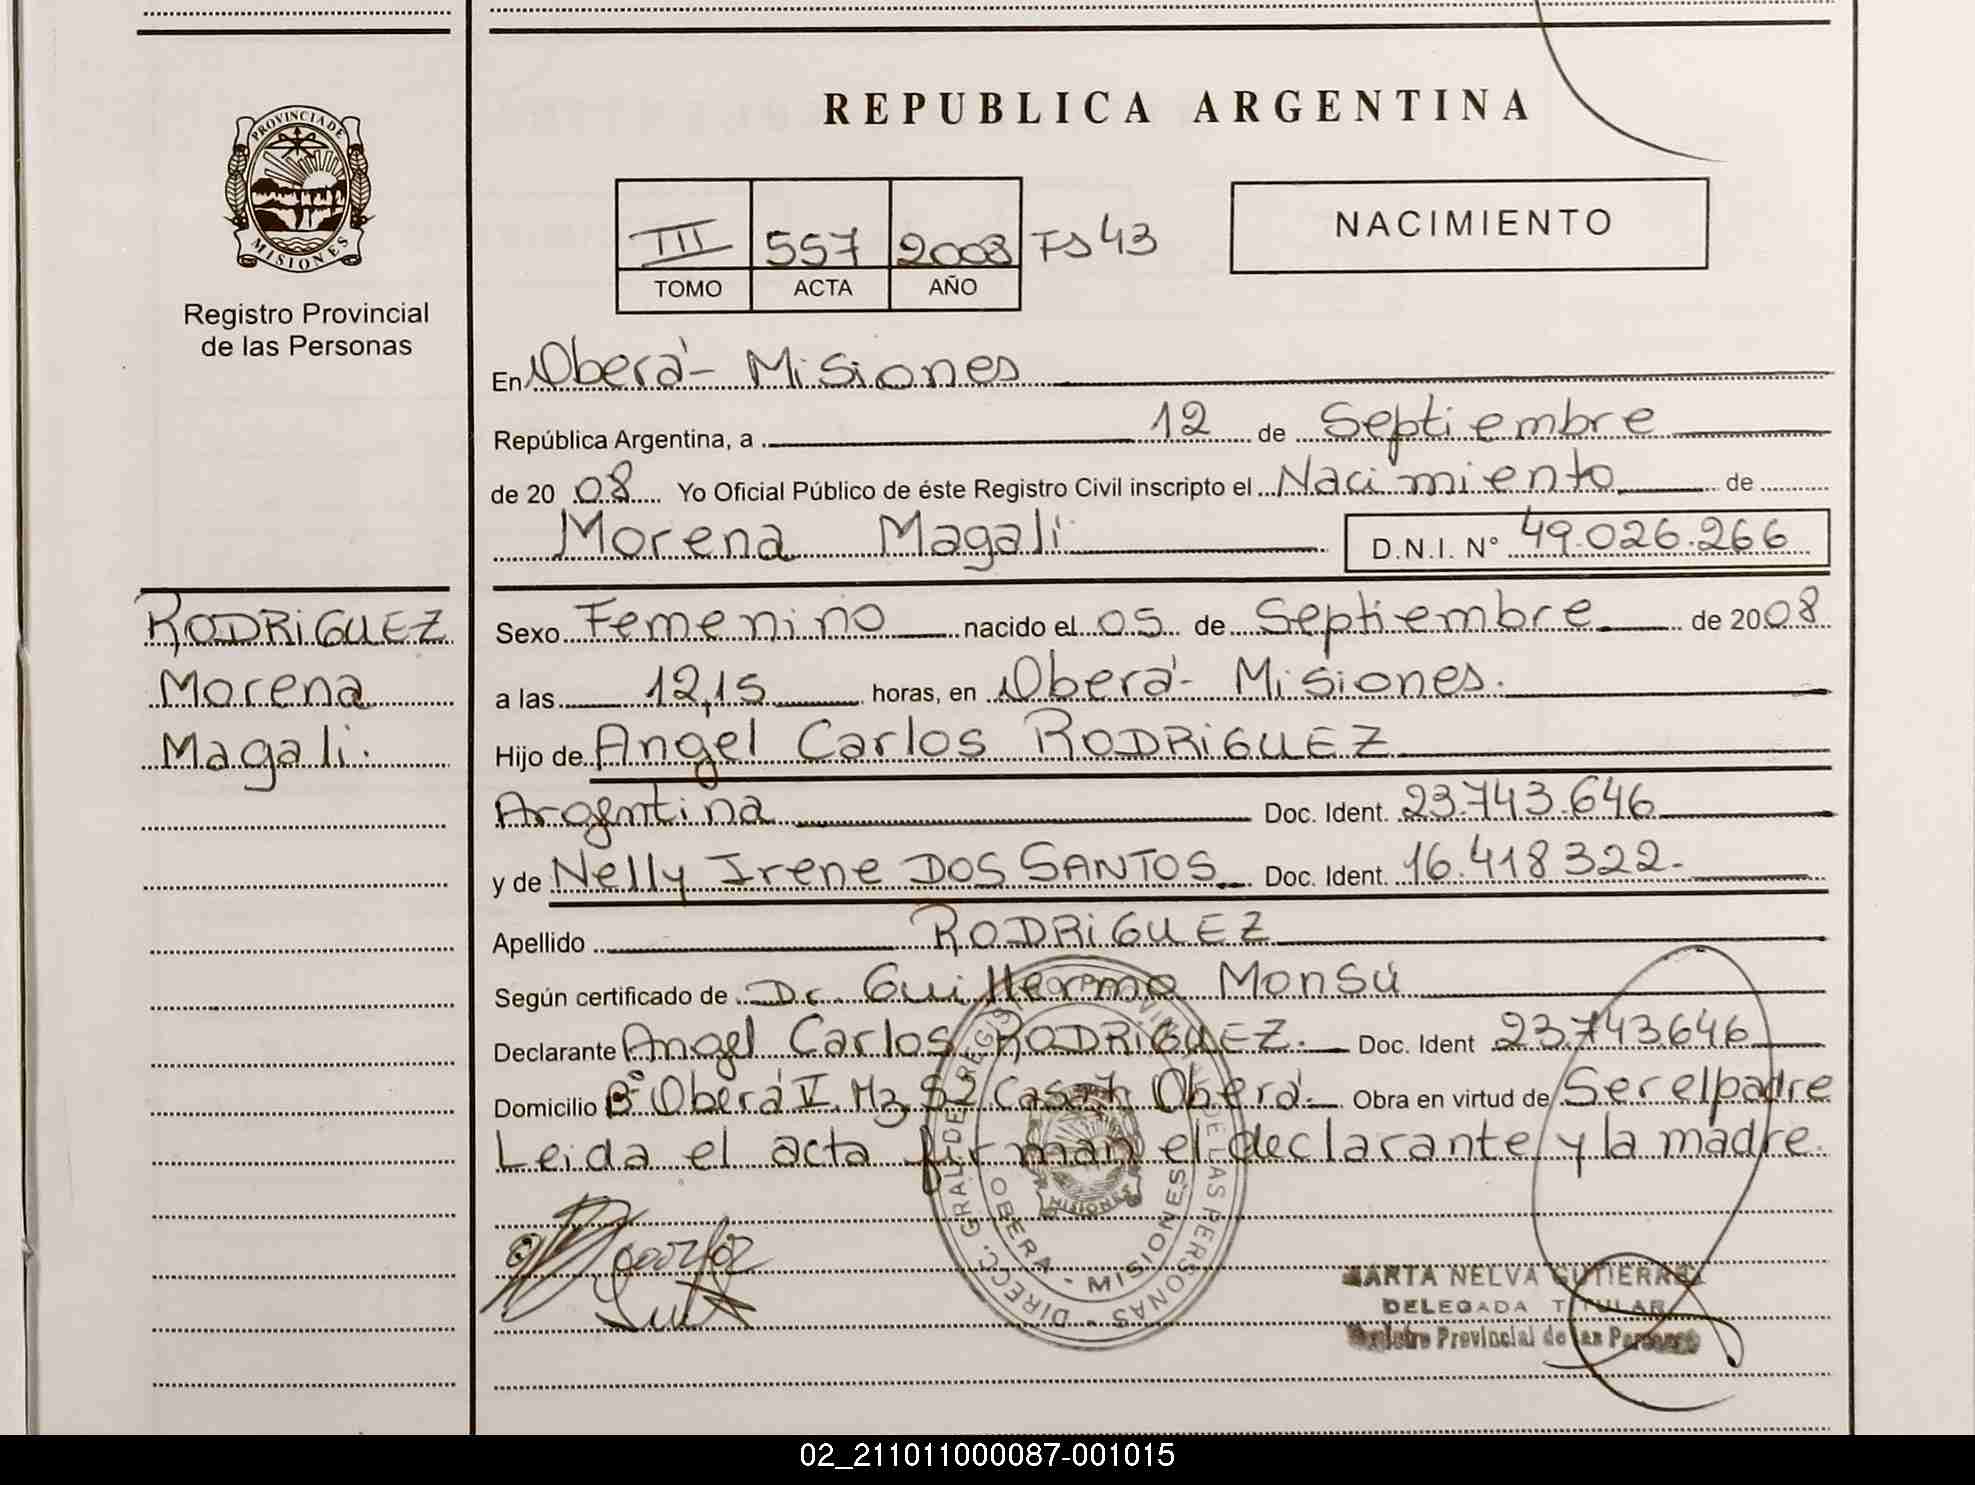 REPUBLICA ARGENTINA
PROVINCIA DE MISIONES
Registro Provincial
de las Personas
III 557 2008 Fs 43
TOMO ACTA AÑO
NACIMIENTO
En Oberá - Misiones
República Argentina, a 12 de Septiembre
de 20 08 Yo Oficial Público de éste Registro Civil inscripto el Nacimiento de
Morena Magali D.N.I. N° 49.026.266
RODRiGUEZ
Morena
Magali.
Sexo Femenino nacido el 05 de Septiembre de 2008
a las 12,15 horas, en Oberá - Misiones.
Hijo de Angel Carlos RODRiGUEZ
Argentina Doc. Ident. 23.743.646
y de Nelly Irene DOS SANTOS Doc. Ident. 16.418322.-
Apellido RODRiGUEZ
Según certificado de Dr. Guillermo Monsú
Declarante Angel Carlos RODRiGUEZ. Doc. Ident 23.743646
Domicilio B° Oberá V. Mz, 52 Casa Oberá. Obra en virtud de Ser el padre
Leida el acta firman el declarante y la madre.
DIRECC. GRAL. DE REGISTRO PROVINCIAL DE LAS PERSONAS
OBERA - MISIONES
MISIONES
MARTA NELVA GUTIERREZ
DELEGADA TITULAR
Registro Provincial de las Personas
02_211011000087-001015